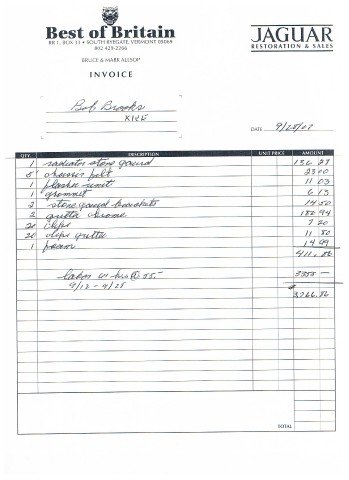 Best of Britain
RR 1, BOX 21 • SOUTH RYEGATE, VERMONT 05069
802 429-2266
BRUCE & MARK ALLSOP
INVOICE
JAGUAR
RESTORATION & SALES
Bob Brooks
DATE 9/25/07
QTY. DESCRIPTION UNIT PRICE AMOUNT
1 radiator stone guard
8' chassis felt 23 00
1 flasher unit 11 03
1 grommet 6 13
2 stone guard brackets 14 50
2 gutter chrome 180 94
20 clips 7 20
20 clips gutter 11 80
1 foam 14 99
411.86
labor 61 hrs @ 55- 3355 -
9/12 - 9/25
3,766.86
TOTAL